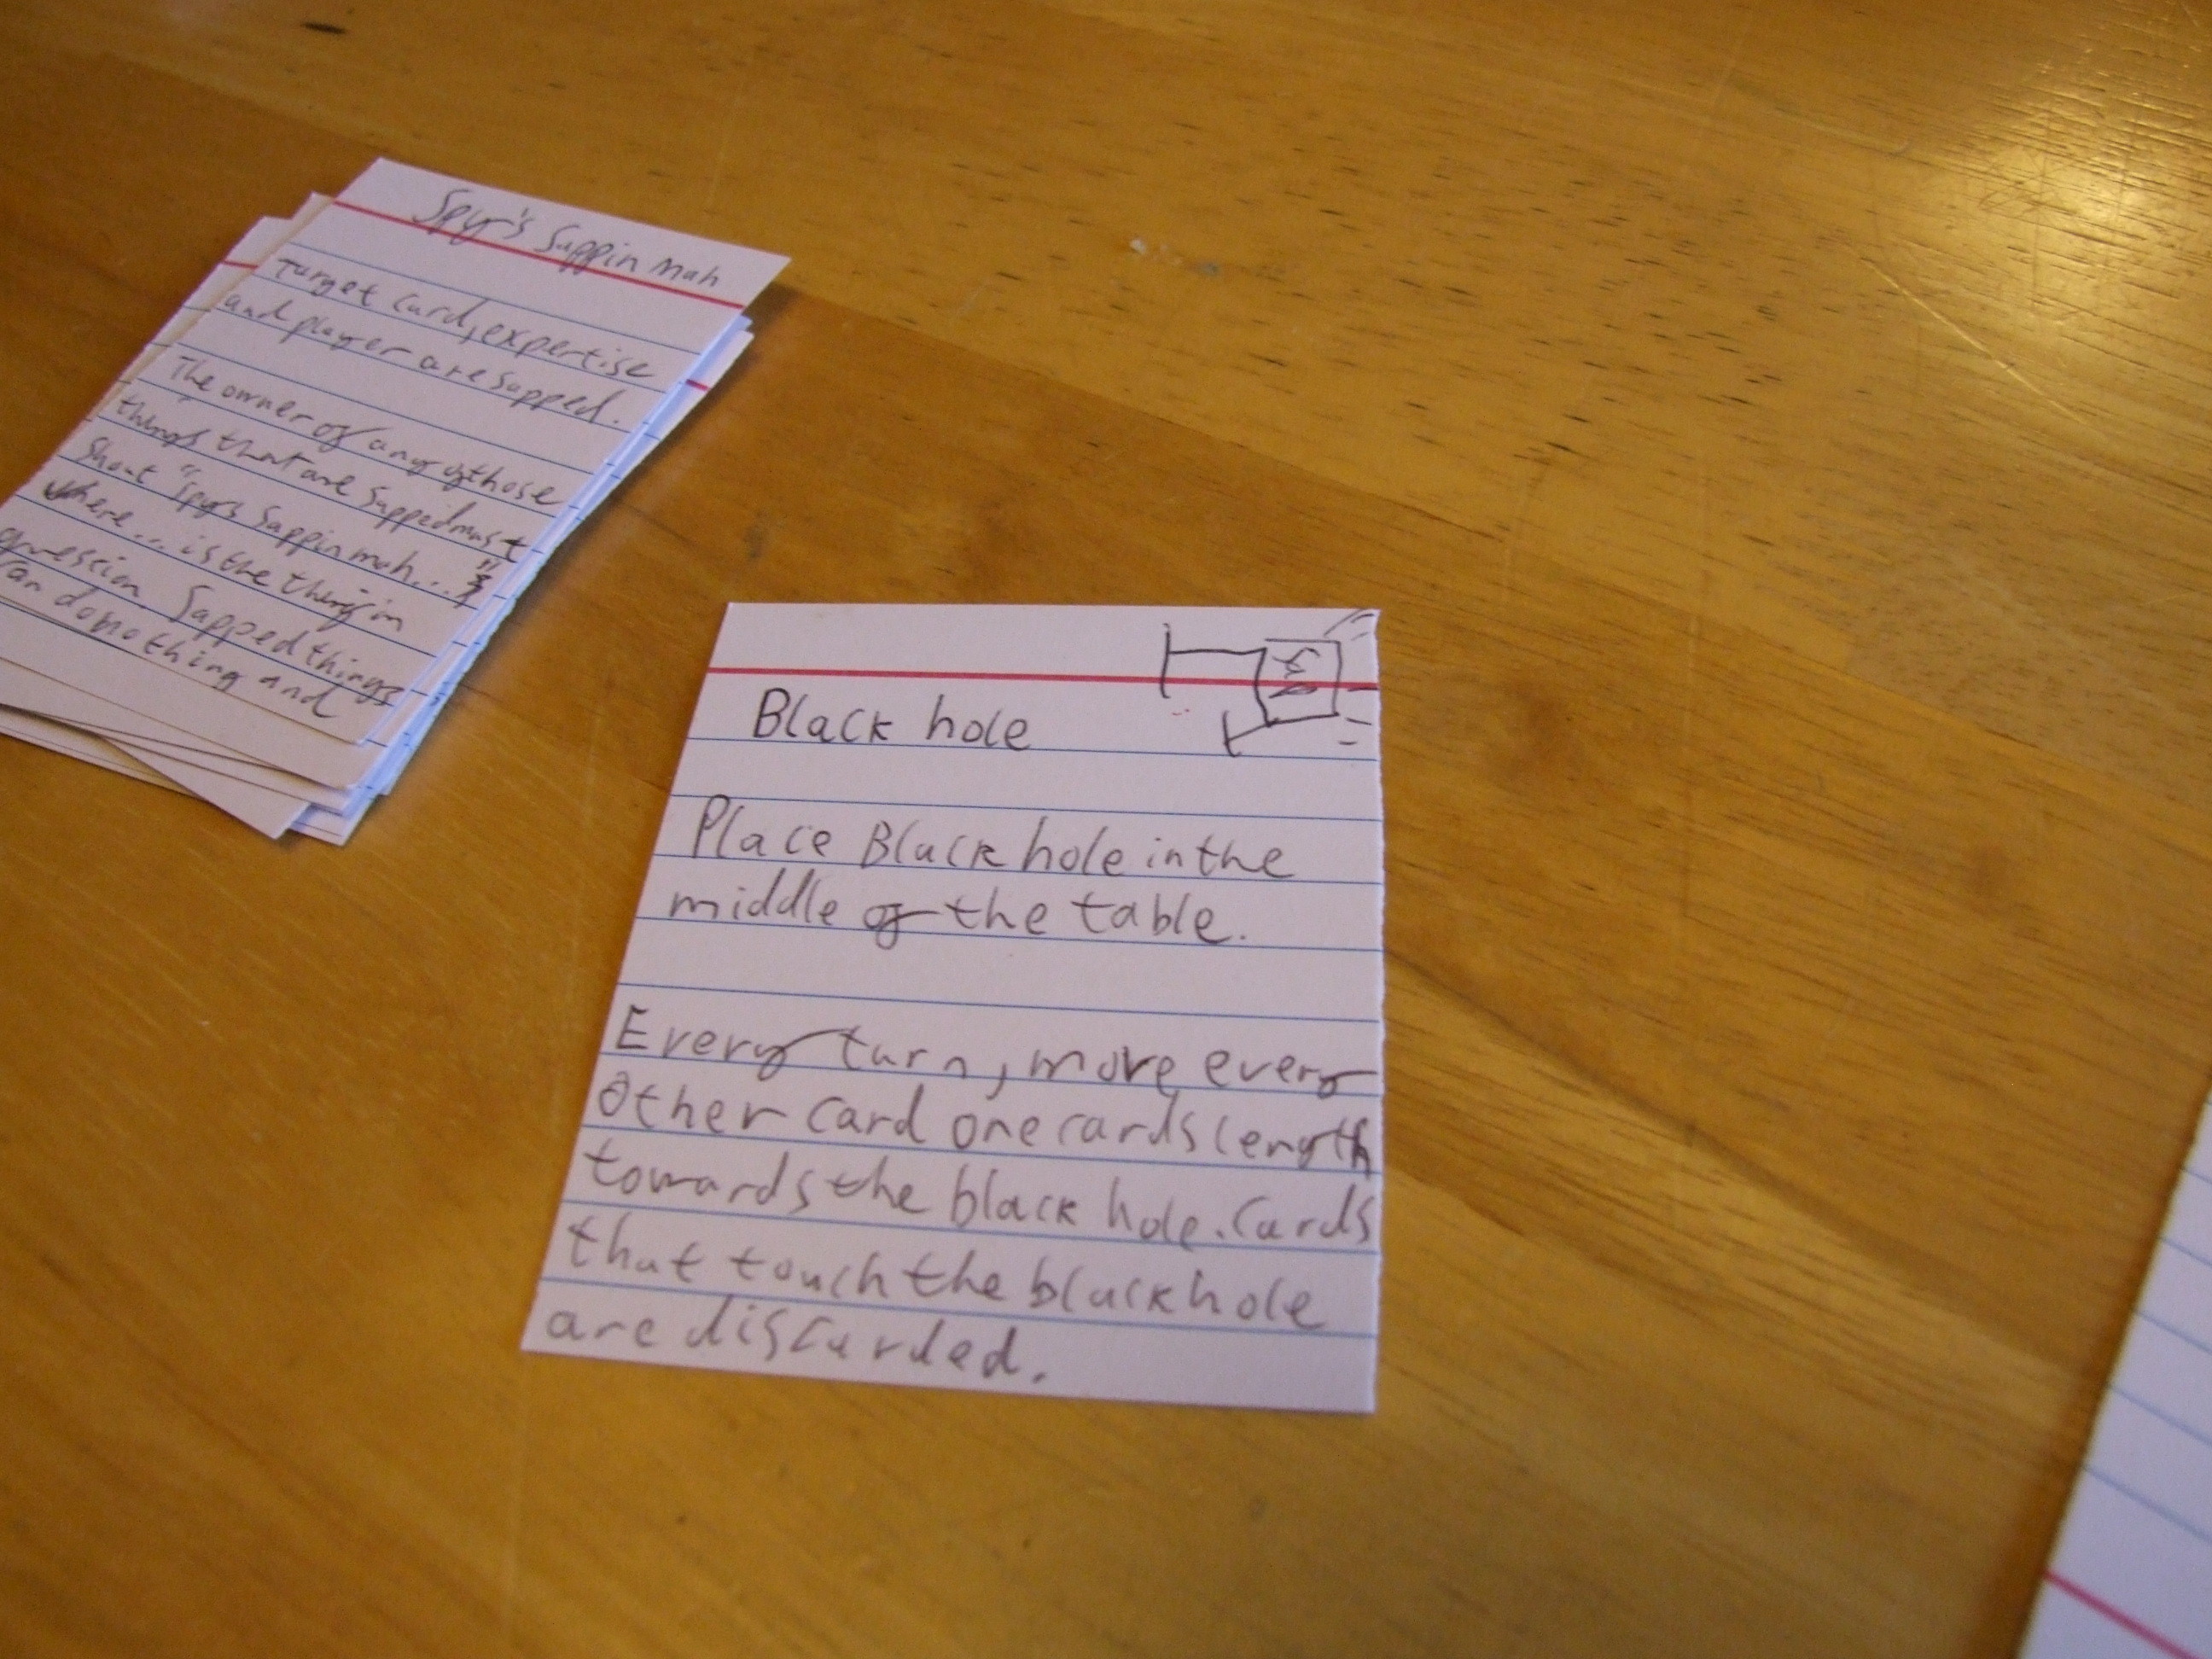 Spy's Sappin mah
Target card, expertise
and player are sapped.
The owner of any of those
things that are sapped must
Shout "Spy's Sappin mah..."
where ... is the thing in
question. Sapped things
can do nothing and
Black hole
Place Black hole in the
middle of the table.
Every turn, move every
other card one cards length
towards the black hole. Cards
that touch the black hole
are discarded.